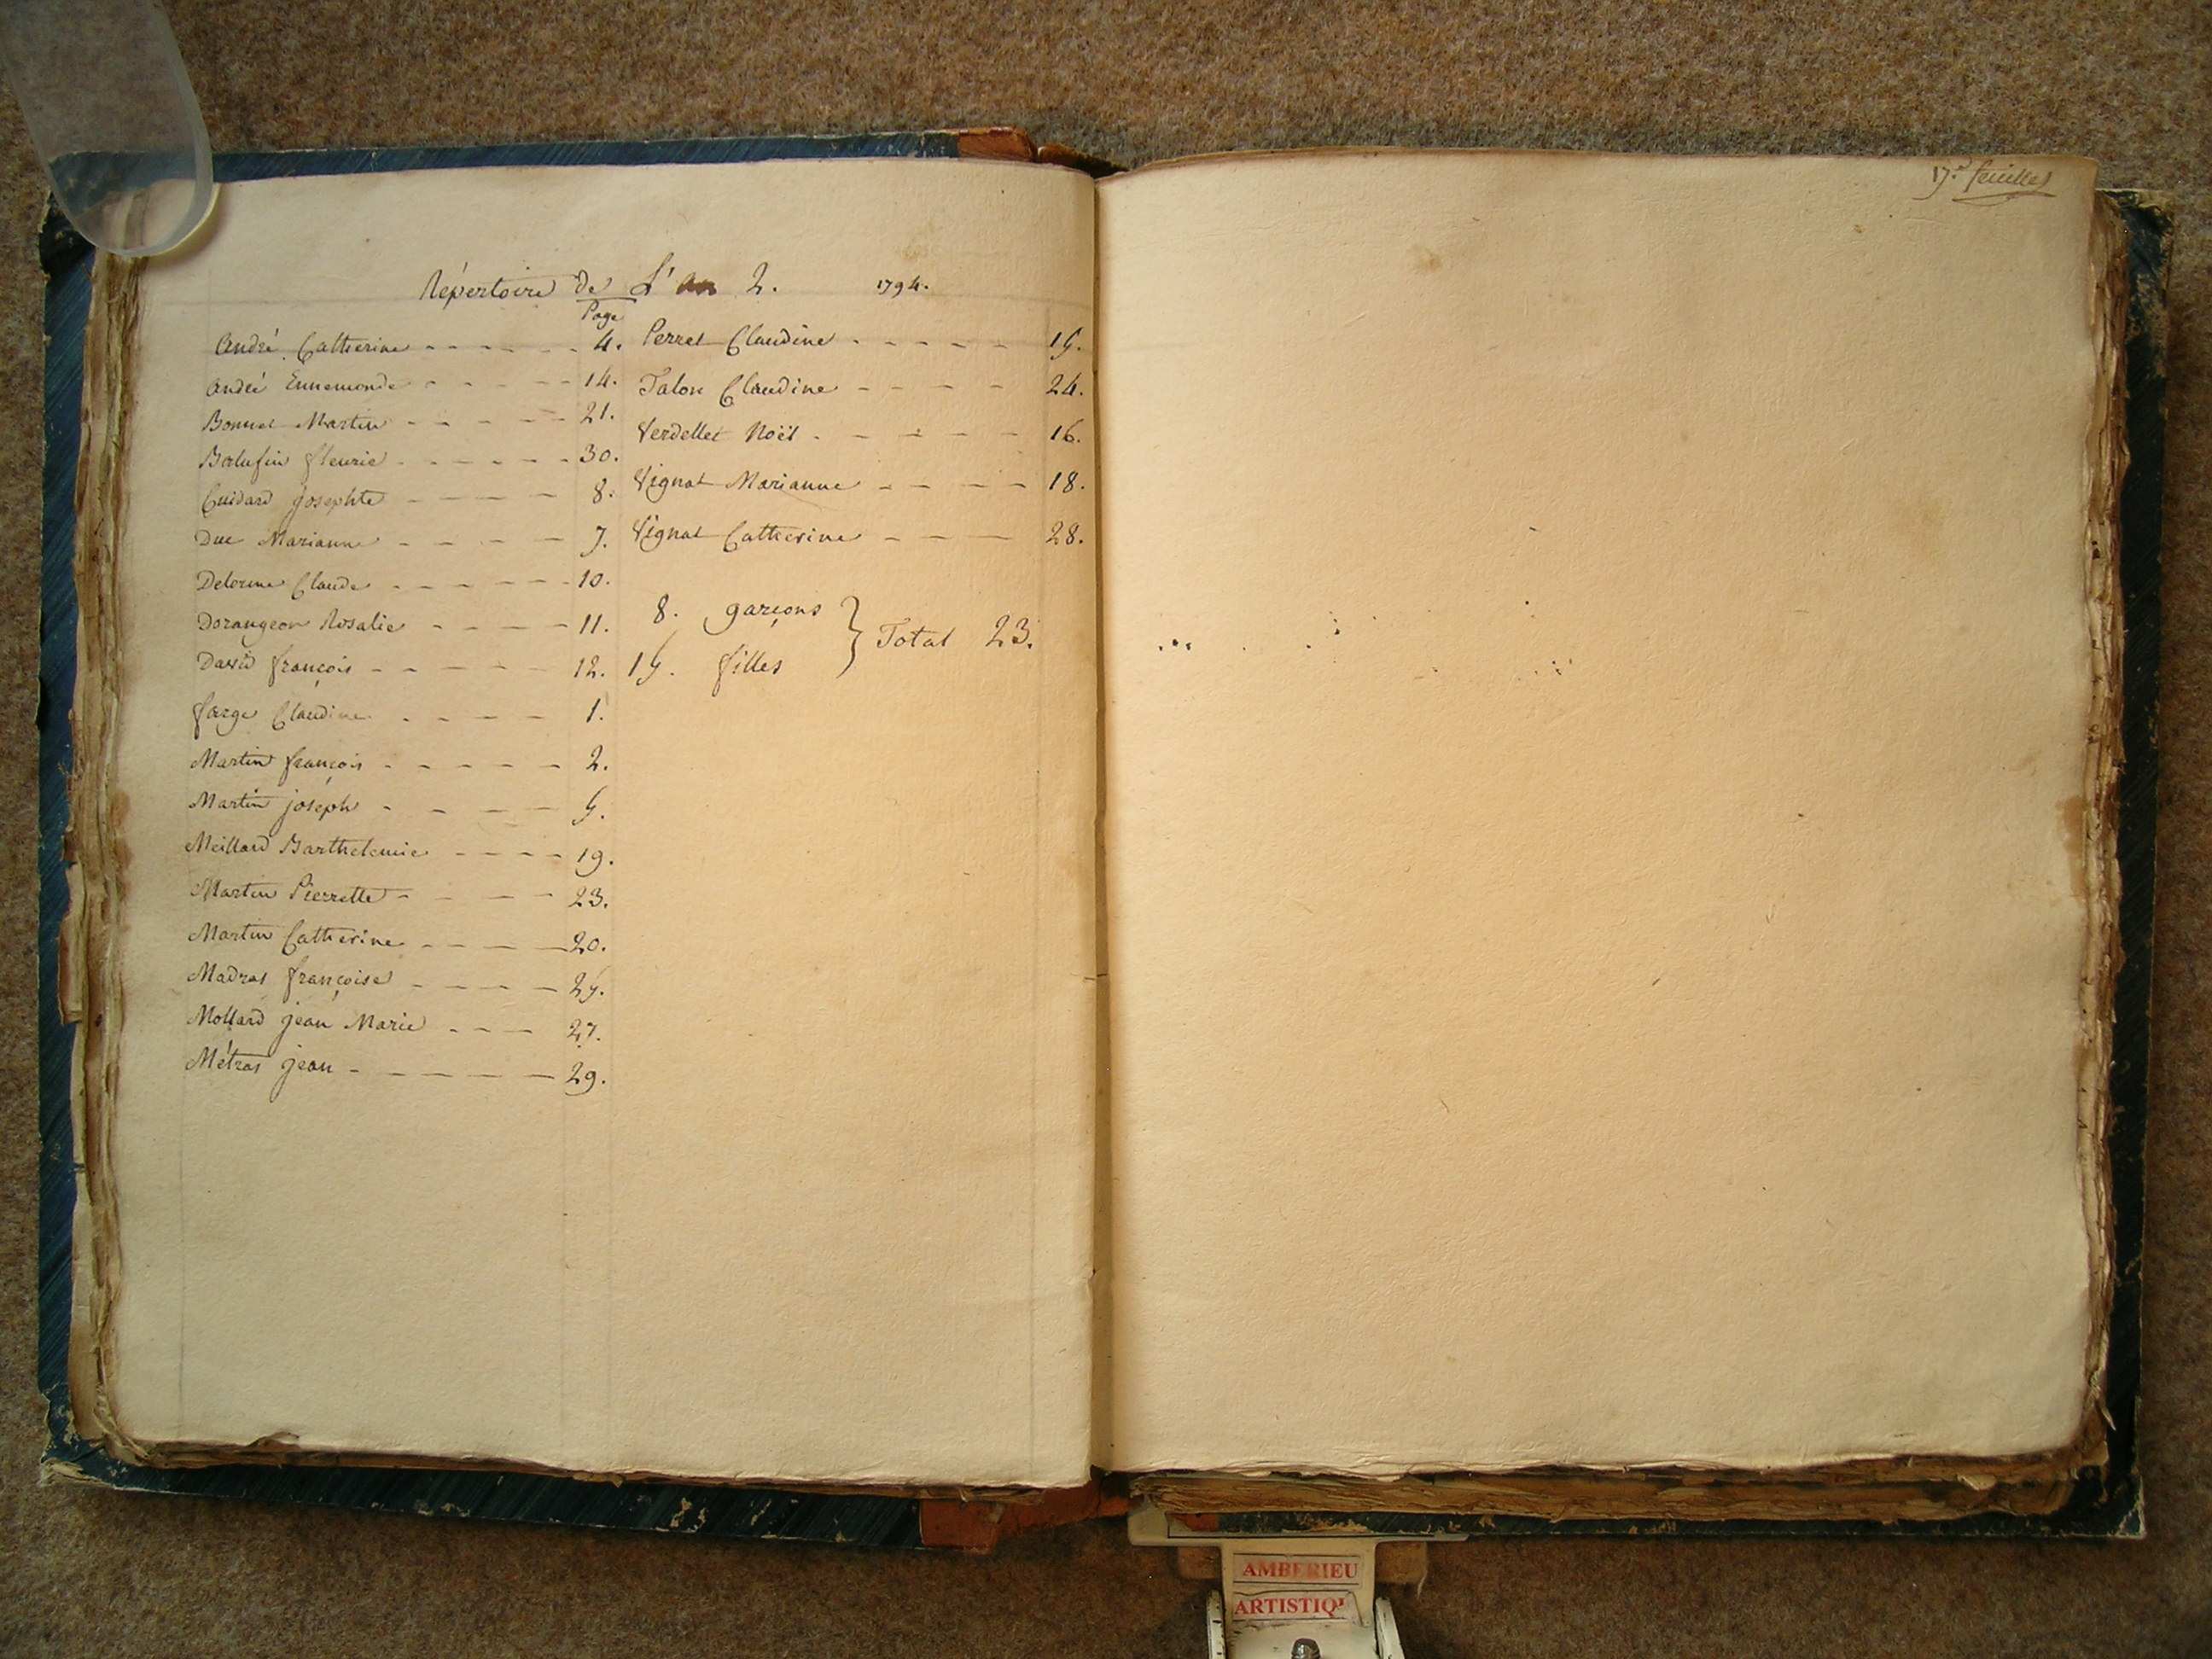 Répertoire de L'an 2. 1794.
Page
André Catherine - - - - - - 4.
André Ennemonde - - - - - 14.
Bonnet Martin - - - - - 21.
Balufin fleurie - - - - - - 30.
Cuidard josephte - - - - 8.
Duc Marianne - - - - 7.
Delorme Claude - - - - - - 10.
Dorangeon Rosalie - - - - 11.
David françois - - - - - 12.
farge Claudine - - - - 1.
Martin françois - - - - - 2.
Martin joseph - - - - 5.
Meillard Barthelemie - - - - 19.
Martin Pierrette - - - - 23.
Martin Catherine - - - - 20.
Madras françoise - - - - 25.
Mollard jean Marie - - - 27.
Métras jean - - - - - - 29.
Perret Claudine - - - - - 15.
Talon Claudine - - - - 24.
Verdellet Noël - - - - - 16.
Vignat Marianne - - - - 18.
Vignat Catherine - - - 28.
8. garçons
15. filles
} Total 23.
17.e feuillet
AMBERIEU
ARTISTIQ